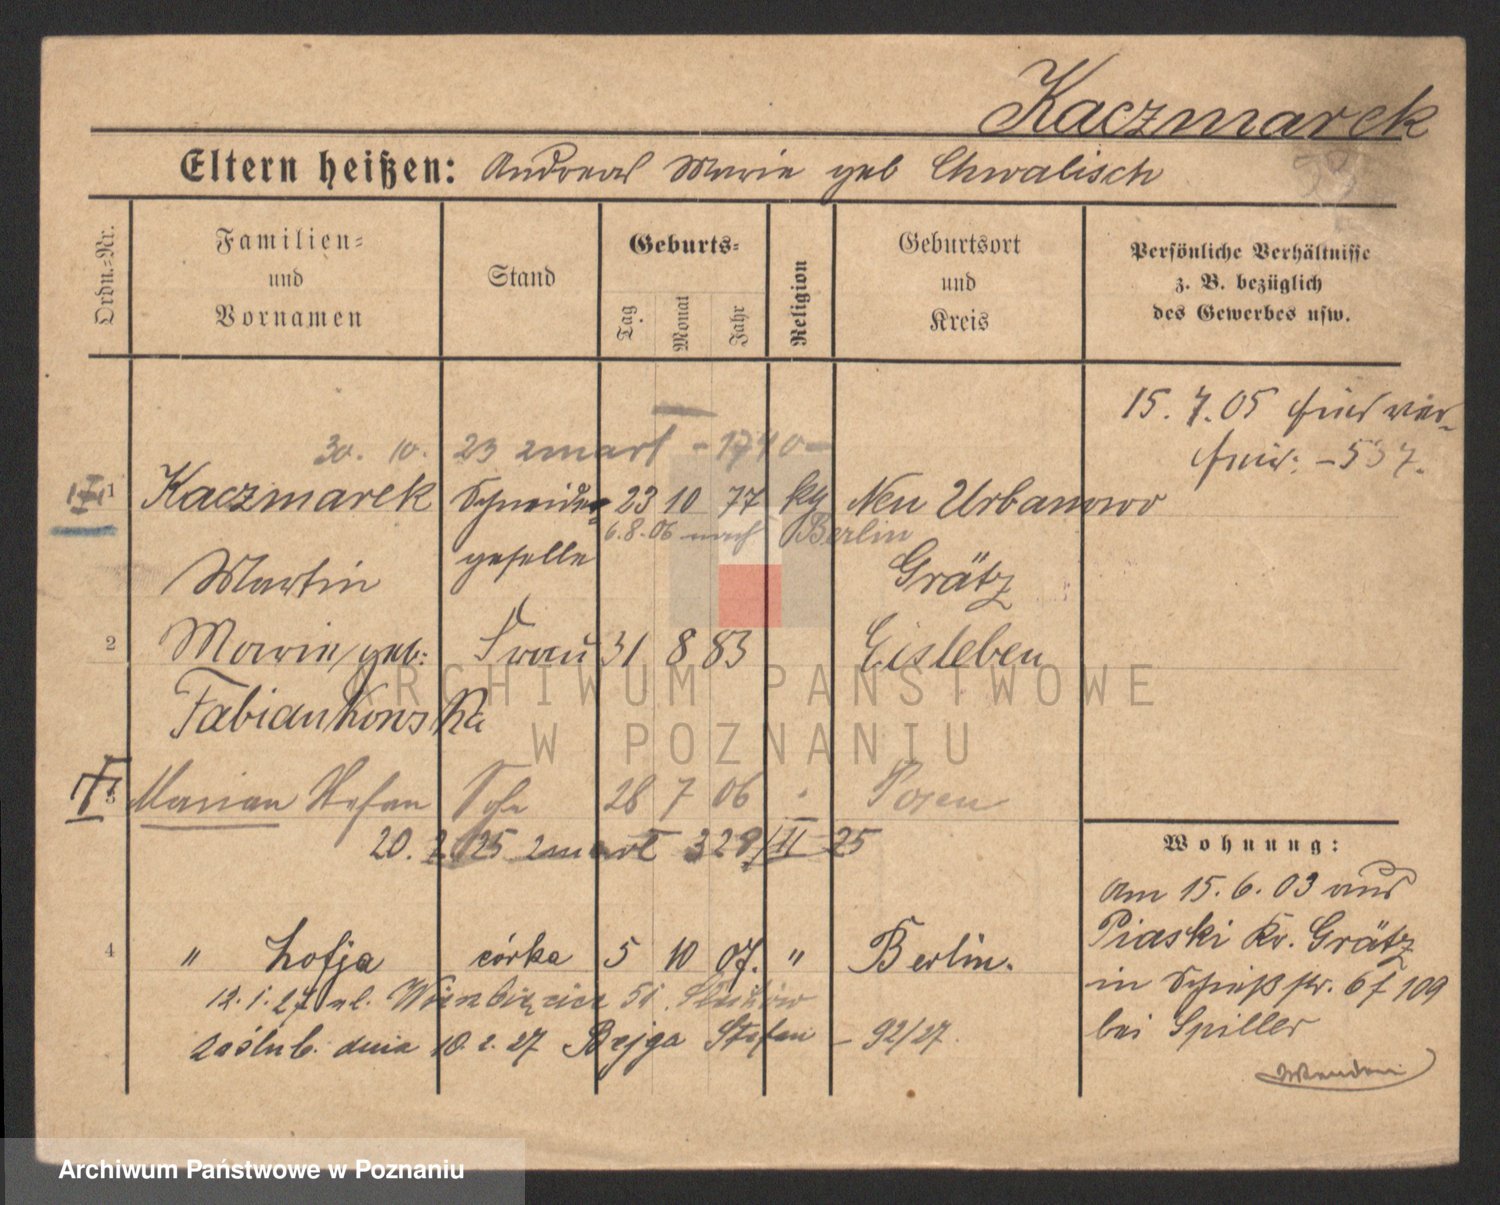 Kaczmarek
Eltern heißen: Andreas Marie geb Chwalisch
Ordn.=Nr.
Familien=
und
Vornamen
Stand
Geburts=
Tag
Monat
Jahr
Religion
Geburtsort
und
Kreis
Persönliche Verhältnisse
z. B. bezüglich
des Gewerbes usw.
15. 7. 05
30. 10. 23 zmarł - 1740 -
- 537.
1 Kaczmarek Schneider= 23 10 77 kg Neu Urbanowo
6.8.06 nach Berlin
Martin geselle Grätz
2 Marie geb: Frau 31 8 83 Eisleben
Fabiankowska
3 Marian Stefan Sohn 28 7 06 Posen
20. 2. 25 zmarł 329/II 25
4 " Zofja córka 5 10 07. " Berlin.
12. 1. 27 ul. 51.
zaślub. dnia 10. 2. 27 Bejga Stefan - 92/27.
Wohnung:
am 15. 6. 03 aus
Piaski Kr. Grätz
in Schießstr. 6 109
bei Spiller
ARCHIWUM PAŃSTWOWE
W POZNANIU
Archiwum Państwowe w Poznaniu